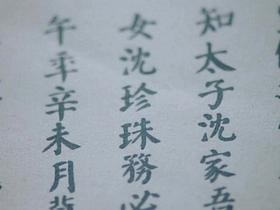 知太子沈家吾
女沈珍珠務必
午年辛未月